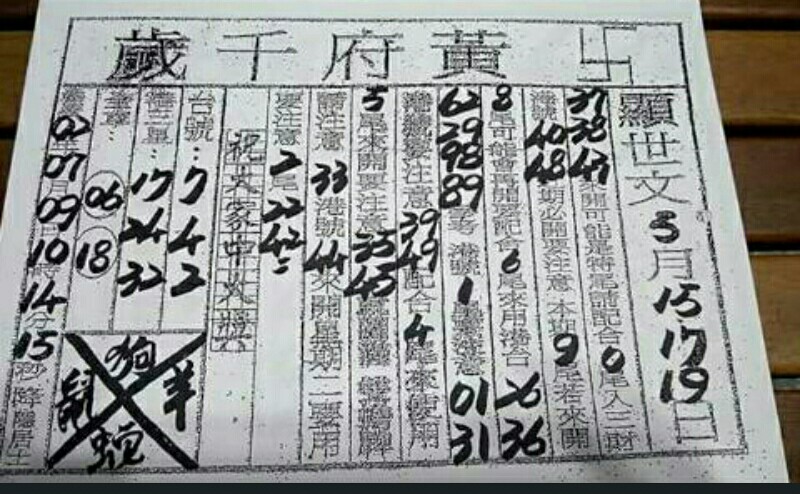 黃府千歲 卍
顯世文 5月15 17 19日
37 38 47 來開可能是特尾請配合 0 尾入三財
港號 40 48 期必開要注意 本期 9 尾若來開
8 尾可能會再開 配合 6 尾來用港台 26 36
62 29 98 89 參考 港號 1 尾 注意 01 31
港號要注意 39 49 配合 4 尾來使用
5 尾來開要注意 35 45
請注意 33 港號 44 來開星期二要用
要注意 2 尾 22 42
祝大家中大獎
台號： 7 4 2
港三星： 17 24 32
06 18
02 07月 09日 10時 14分 15秒 降 居士
狗
鼠 羊